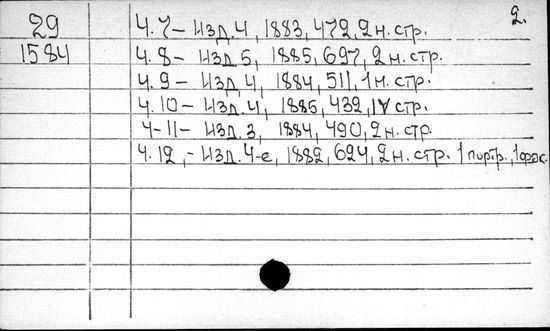 2.
29 Ч. 7 – Изд. 4, 1883, 472, 2 н. стр.
1584 Ч. 8 – Изд. 5, 1885, 697, 2 н. стр.
Ч. 9 – Изд. 4, 1884, 511, 1 н. стр.
Ч. 10 – Изд. 4, 1885, 432, IV стр.
Ч-11 – Изд. 3, 1884, 490, 2 н. стр.
Ч. 12, – Изд. 4-е, 1882, 624, 2 н. стр. 1 портр., 1 факс.